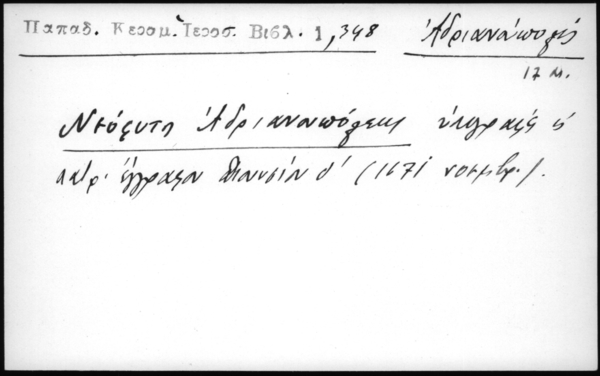 Παπαδ. Κερσμ. Ιεροσ. Βιβλ. 1, 348
Ἀδριανούπολις
17 αι.
Νεόφυτος Ἀδριανουπόλεως ὑπογραφεὺς εἰς
πατρ. ἔγγραφον Διονυσίου δ΄ (1671 νοεμβρ.).